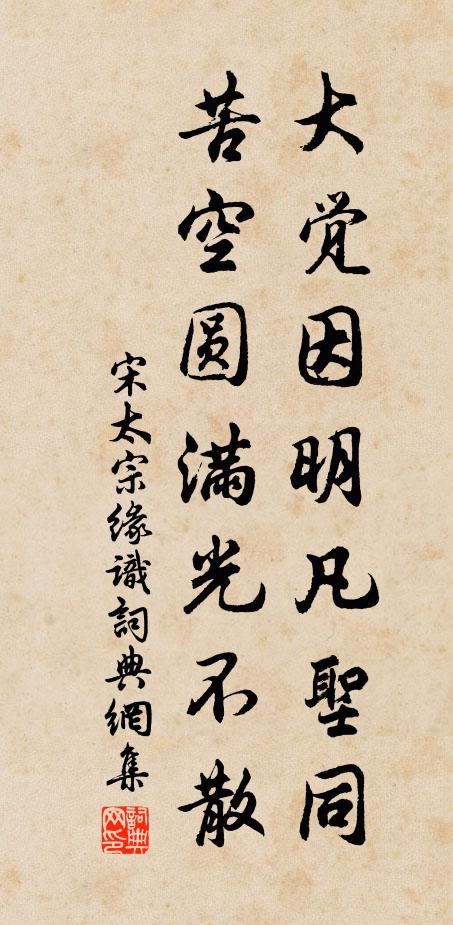 大觉因明凡聖同
苦空圆滿光不散
宋太宗缘識詞典網集
詞典网印